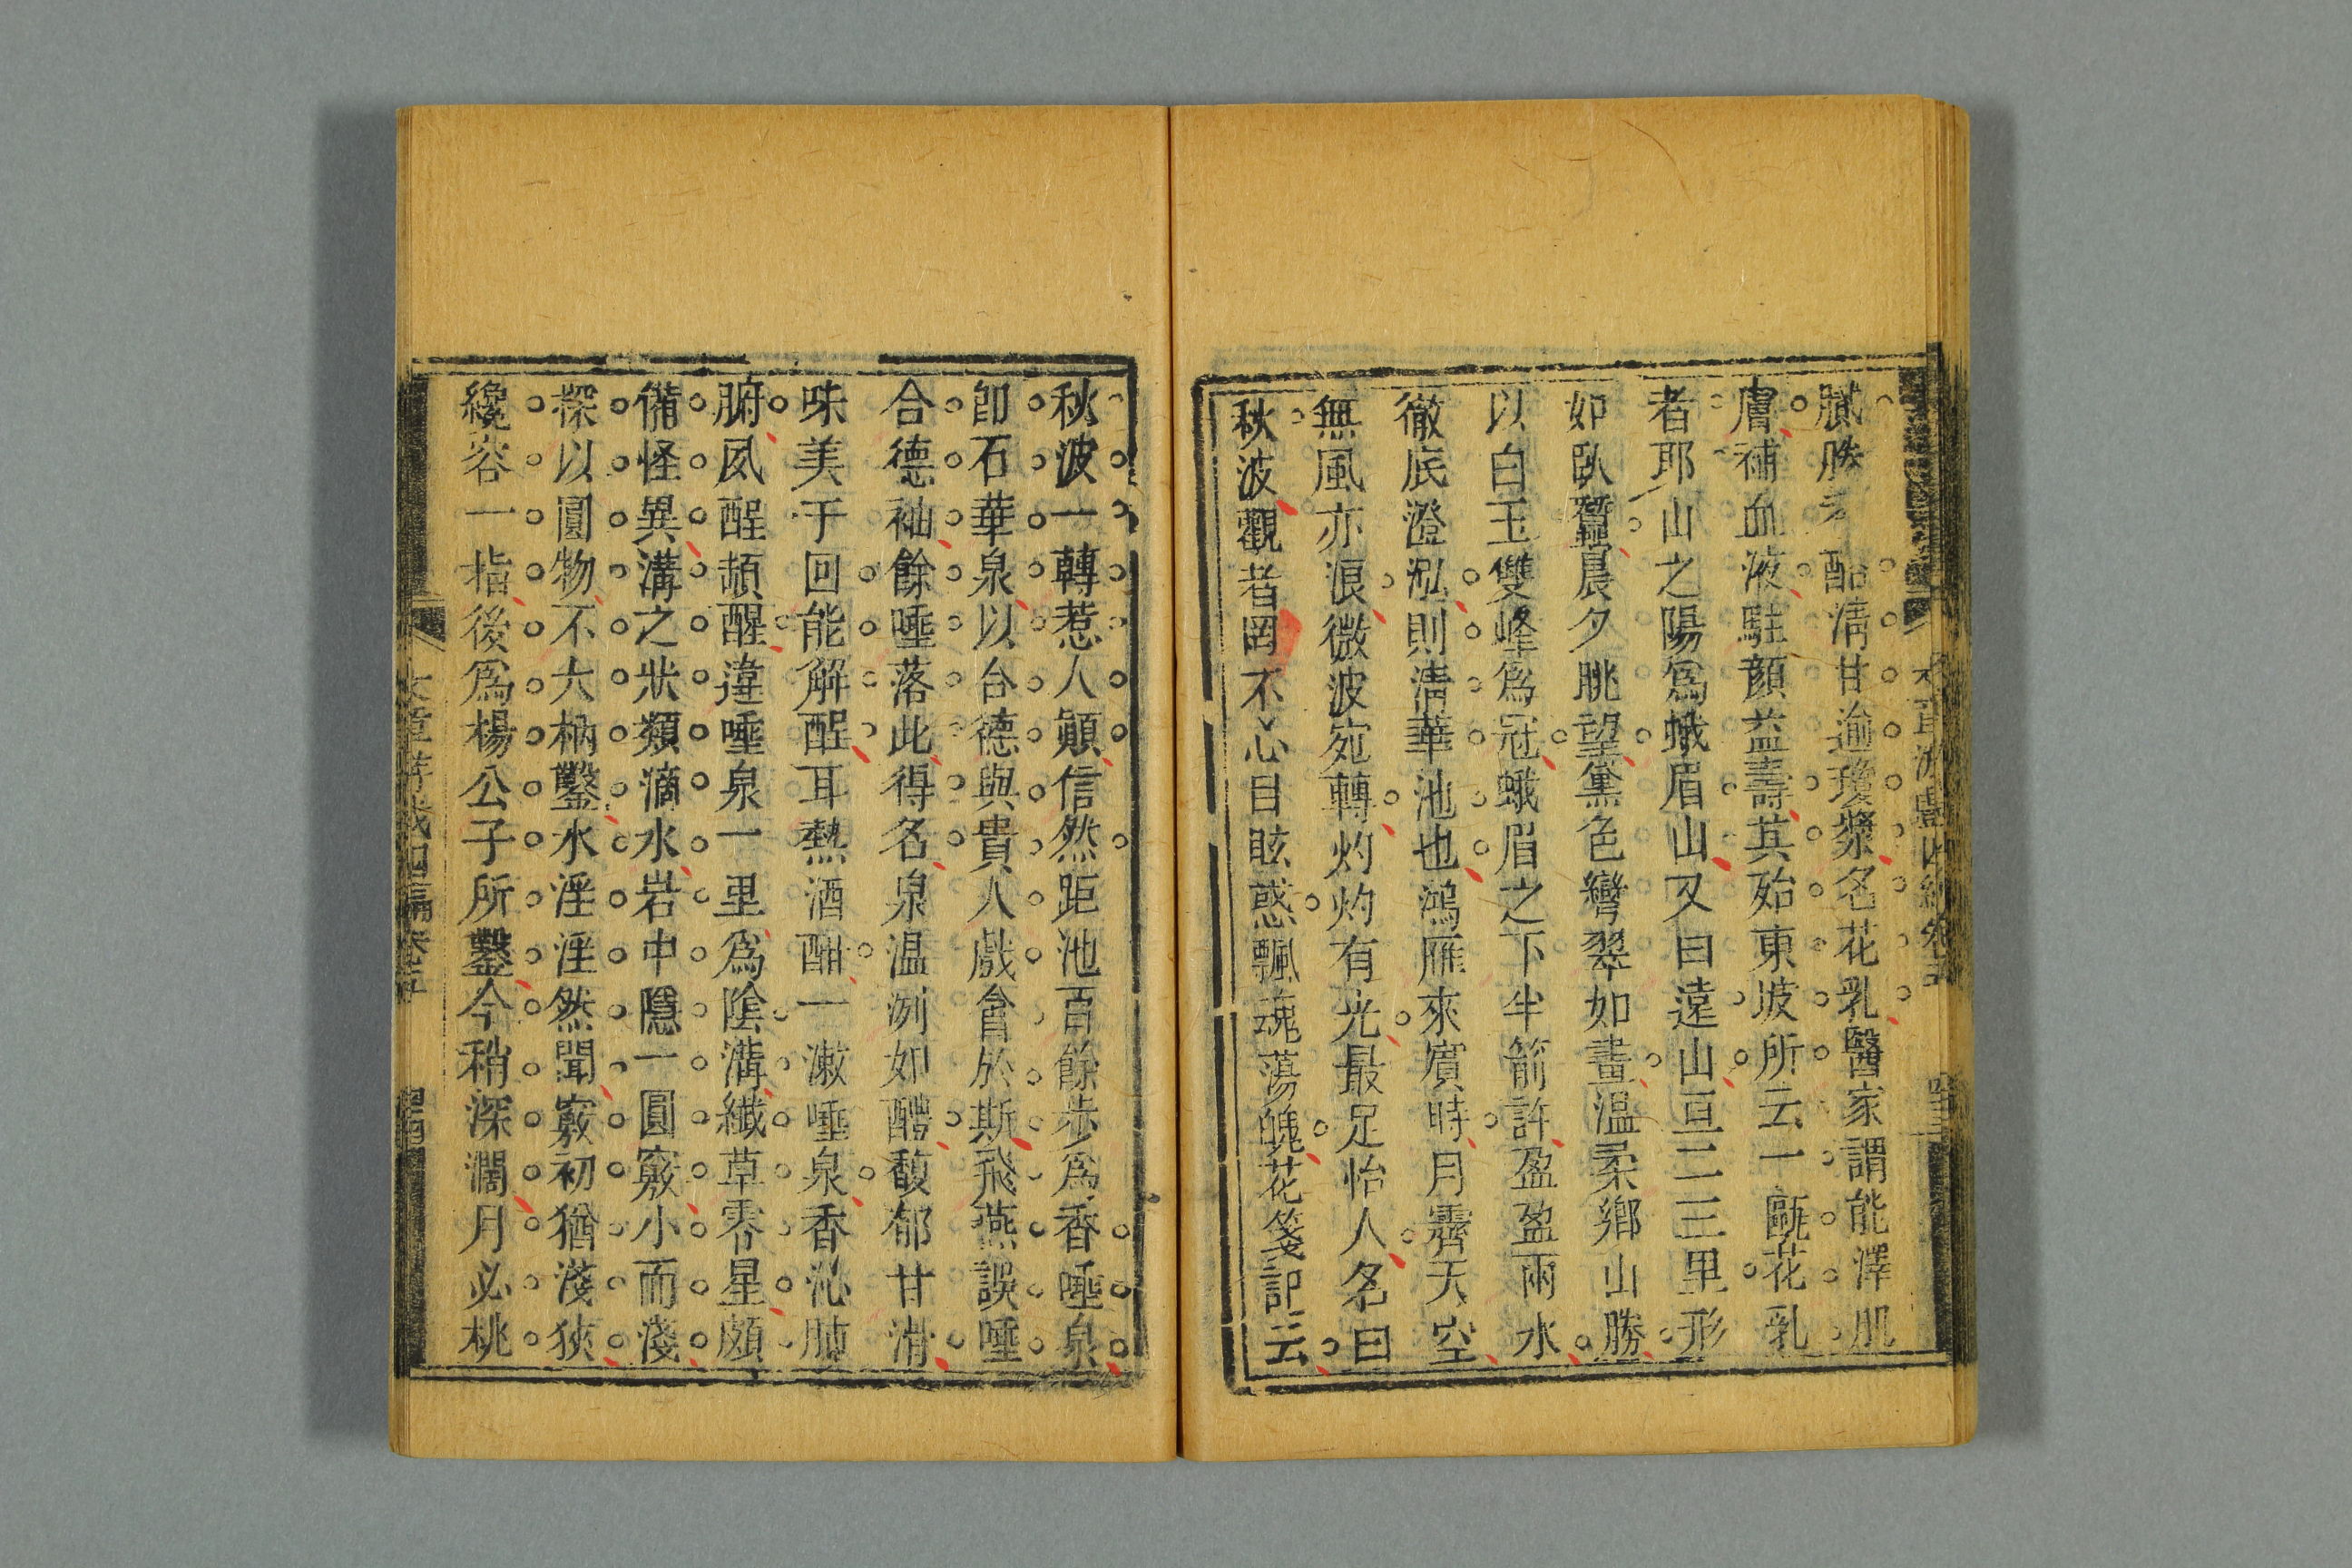 膩勝 酷清甘逾瓊漿名花乳醫家謂能澤肌
膚補血液駐顏益壽其殆東坡所云一甌花乳
者耶山之陽爲蛾眉山又曰遠山亘二三里形
如臥蠶晨夕眺望黛色彎翠如畫溫柔鄉山勝
以白玉雙峰爲冠蛾眉之下半箭許盈盈兩水
徹底澄泓則清華池也鴻雁來賓時月霽天空
無風亦浪微波宛轉灼灼有光最足怡人名曰
秋波觀者罔不心目眩惑飄魂蕩魄花箋記云
秋波一轉惹人顛信然距池百餘步爲香唾泉
卽石華泉以合德與貴人戲會於斯飛燕誤唾
合德袖餘唾落此得名泉溫冽如醴馥郁甘滑
味美于回能解酲耳熱酒酣一漱唾泉香沁肺
腑夙酲頓醒違唾泉一里爲陰溝纖草零星頗
備怪異溝之狀類滴水岩中隱一圓竅小而淺
探以圓物不大枘鑿水淫淫然聞竅初猶淺狹
纔容一指後爲楊公子所鑿今稍深濶月必桃
文章游戲四編卷五